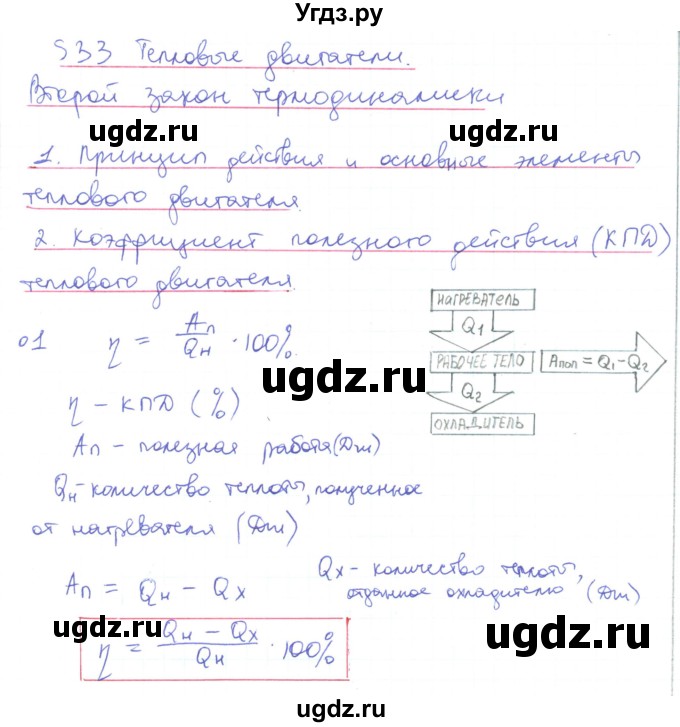 Угдз.ру
§33 Тепловые двигатели.
Второй закон термодинамики
ugdz.ru
ugdz.ru
1. Принцип действия и основные элементы
теплового двигателя.
2. Коэффициент полезного действия (КПД)
теплового двигателя.
о1 η = Aп/Qн · 100%.
НАГРЕВАТЕЛЬ
Q1
РАБОЧЕЕ ТЕЛО Aпол = Q1 - Q2
Q2
ОХЛАДИТЕЛЬ
ugdz.ru
η - КПД (%)
Aп - полезная работа (Дж)
Qн - количество теплоты, полученное
от нагревателя (Дж)
Aп = Qн - Qх
Qх - количество теплоты,
отданное охладителю (Дж)
ugdz.ru
ugdz.ru
η = Qн - Qх / Qн · 100%
ugdz.ru